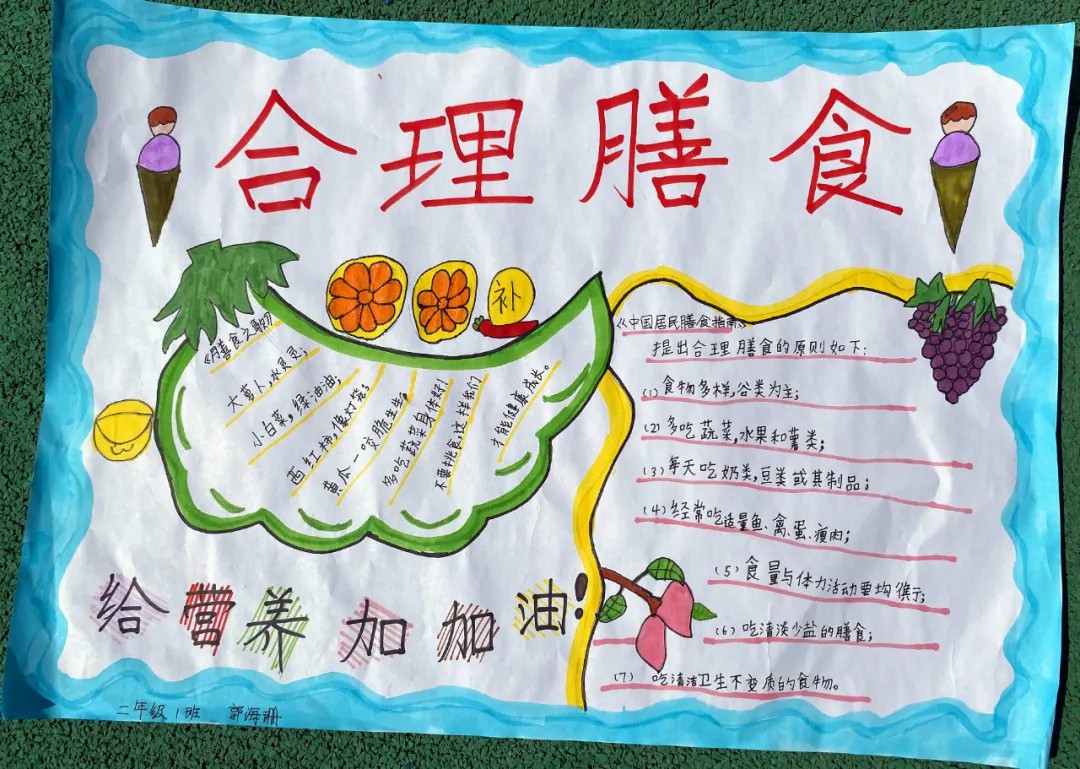 合理膳食
补
《膳食之歌》
大萝卜,水灵灵;
小白菜,绿油油,
西红柿,像灯笼;
黄瓜一咬脆生生。
多吃蔬菜身体好!
不要挑食,这样我们
才能健康成长。
《中国居民膳食指南》
提出合理膳食的原则如下:
(1)食物多样,谷类为主;
(2)多吃蔬菜,水果和薯类;
(3)每天吃奶类,豆类或其制品;
(4)经常吃适量鱼、禽、蛋、瘦肉;
(5)食量与体力活动要均衡;
(6)吃清淡少盐的膳食;
(7)吃清洁卫生不变质的食物。
给营养加加油!
二年级1班 郭海珊